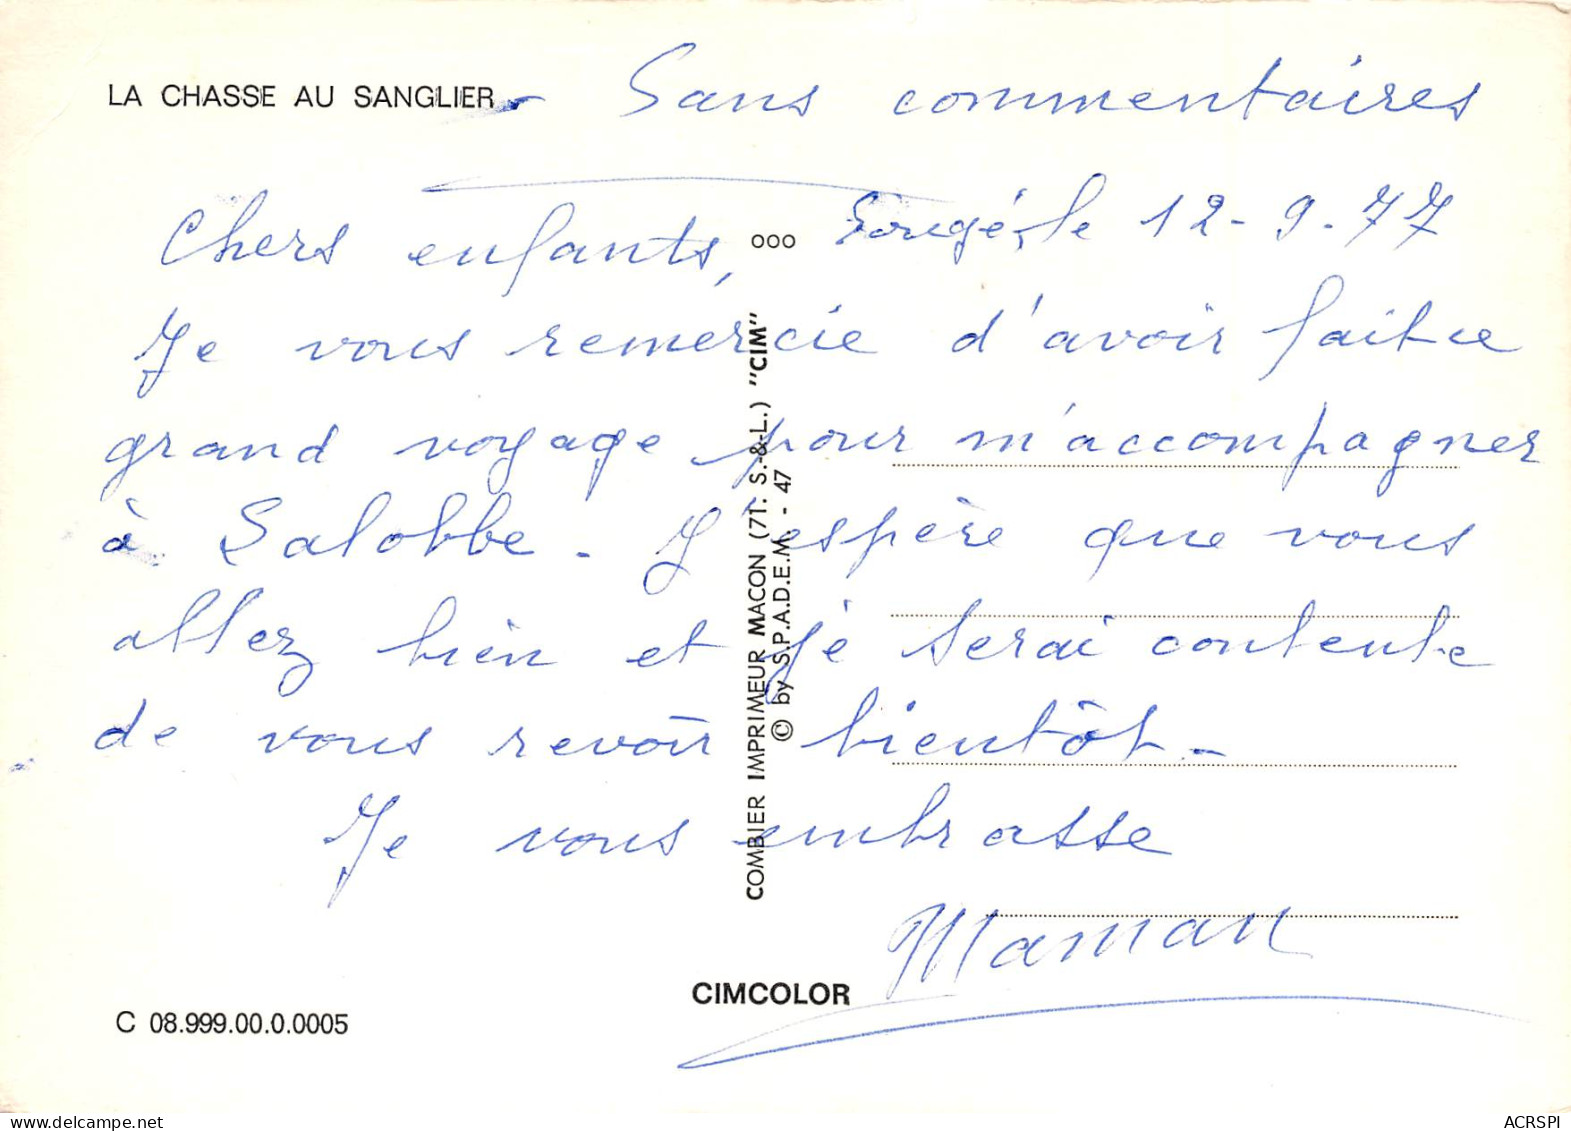 LA CHASSE AU SANGLIER - Sans commentaires
Chers enfants, ooo Sougé, le 12-9-77
Je vous remercie d'avoir fait ce
grand voyage pour m'accompagner
à Salobbe. J'espère que vous
allez bien et je serai contente
de vous revoir bientôt-
Je vous embrasse
Maman
COMBIER IMPRIMEUR MACON (71. S.-&-L.) "CIM"
© by S.P.A.D.E.M. - 47
CIMCOLOR
C 08.999.00.0.0005
delcampe.net
ACRSPI